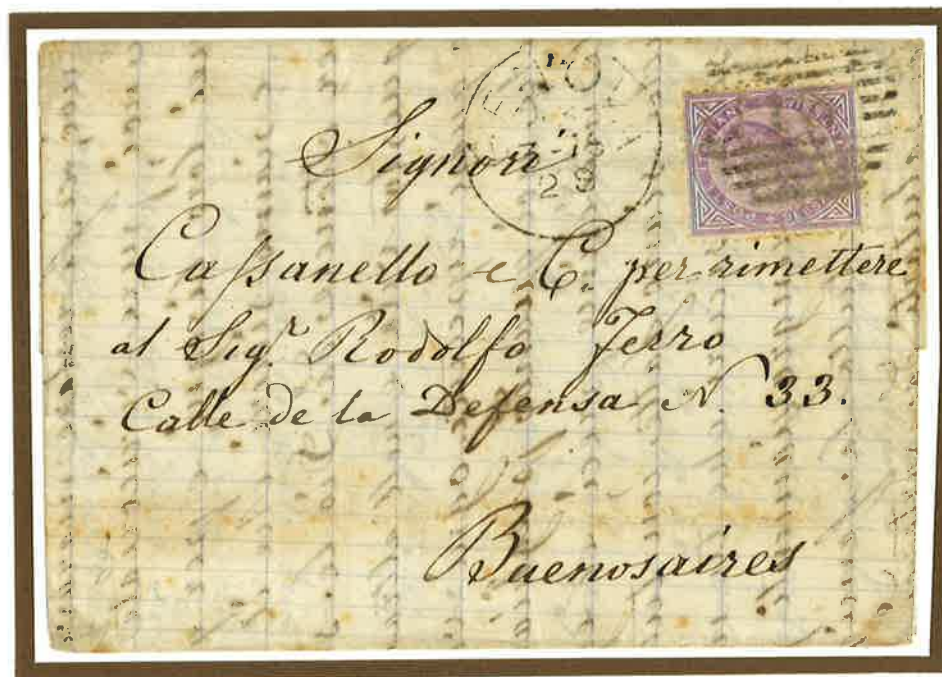 29
Signori
Cassanello e C. per rimettere
al Sigr. Rodolfo Ferro
Calle de la Defensa N. 33.
Buenosaires